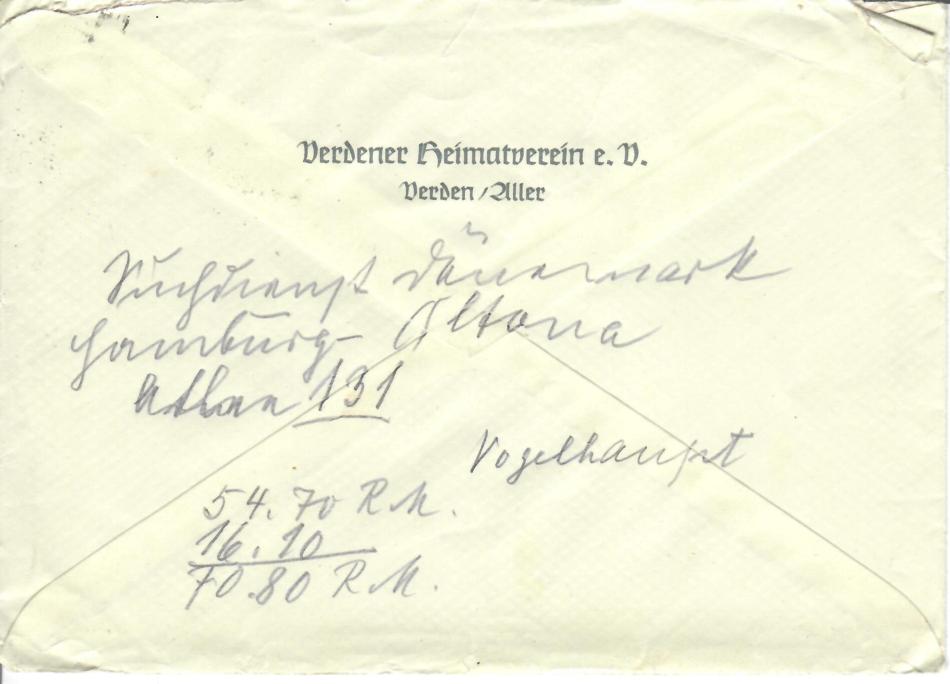 Verdener Heimatverein e. V.
Verden/Aller
Suchdienst Dänemark
Hamburg-Altona
131
Vogelhaupt
54.70 R.M.
16.10
70.80 R.M.